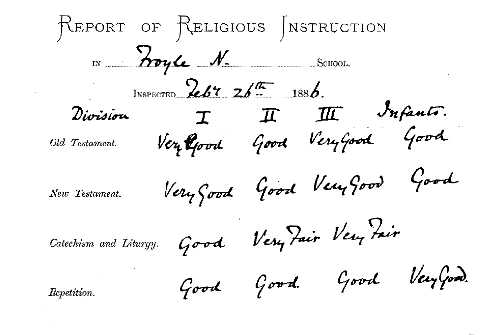 REPORT OF RELIGIOUS INSTRUCTION
IN Froyle N. SCHOOL.
INSPECTED Feby 26th 1886.
Division I II III Infants.
Old Testament. Very Good Good Very Good Good
New Testament. Very Good Good Very Good Good
Catechism and Liturgy. Good Very Fair Very Fair
Repetition. Good Good. Good Very Good.